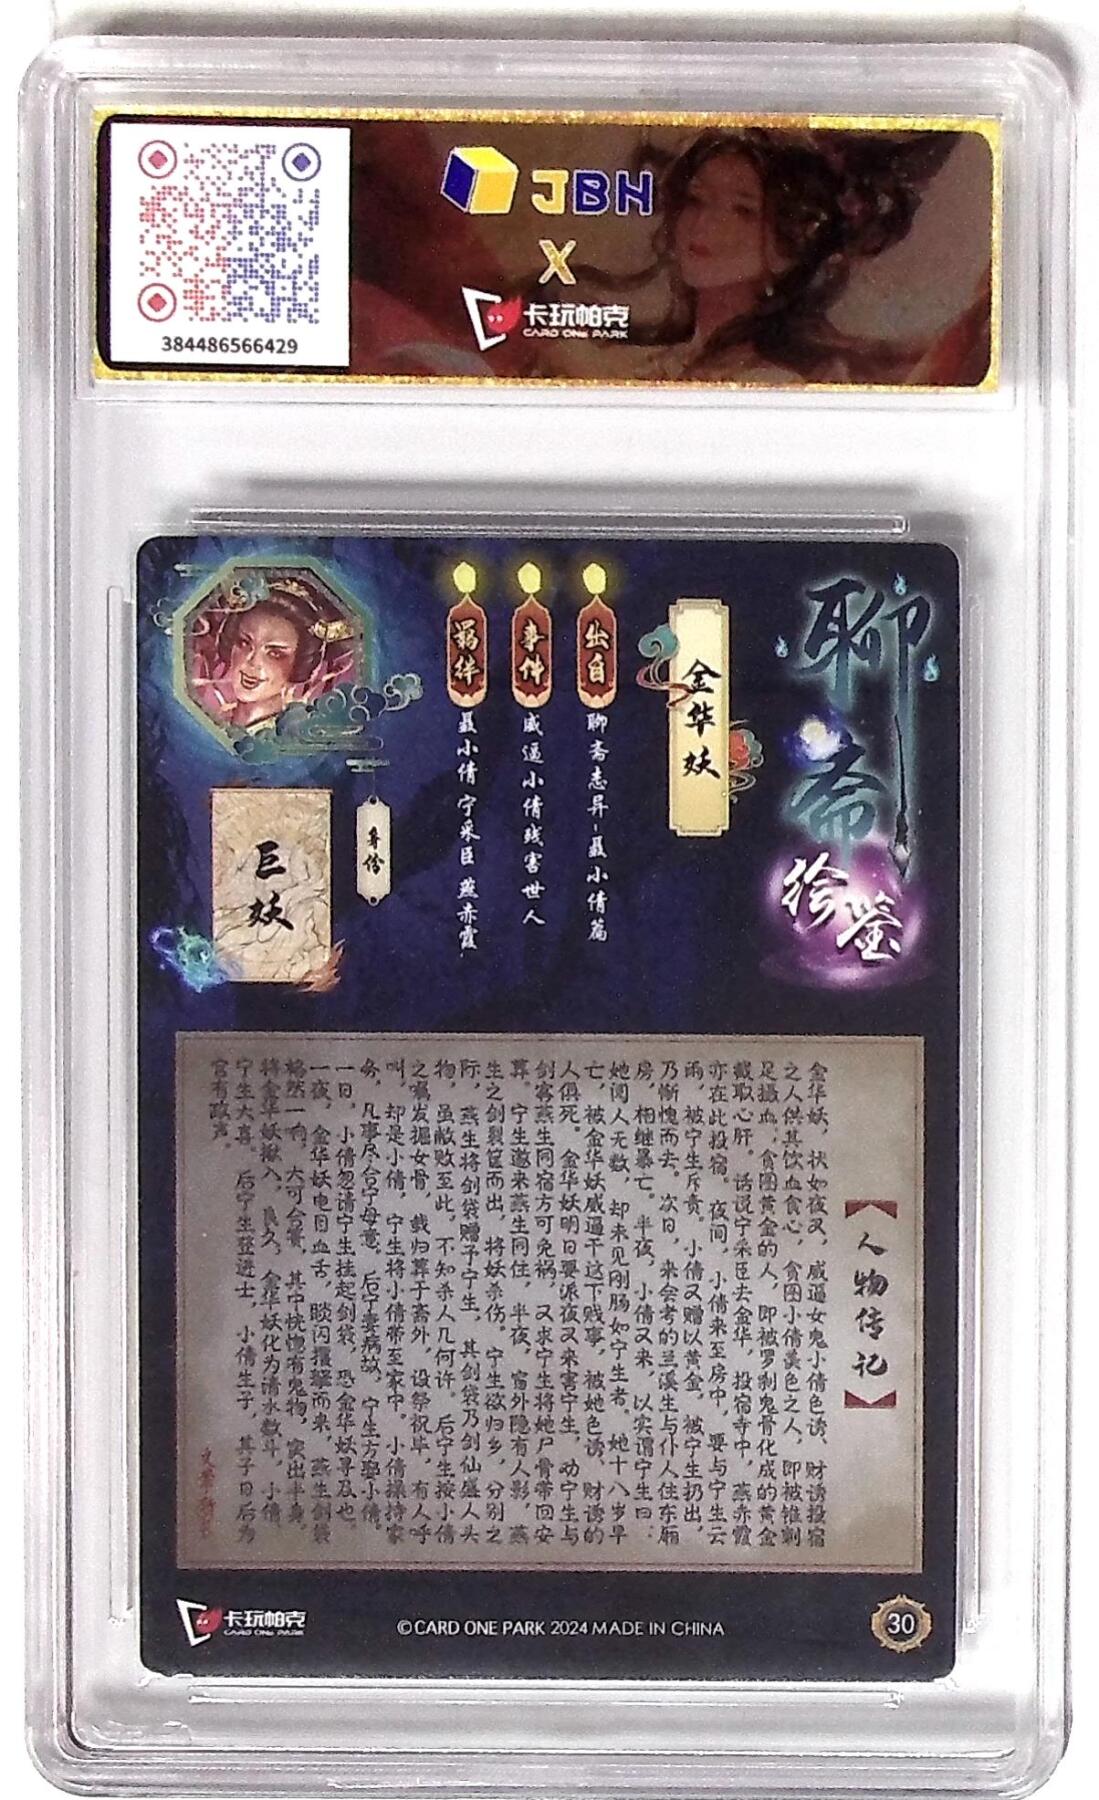 384486566429
JBH
X
卡玩帕克
CARD ONE PARK
聊斋
绘鉴
金华妖
出自
聊斋志异-聂小倩篇
事件
威逼小倩残害世人
羁绊
聂小倩 宁采臣 燕赤霞
身份
巨妖
【人物传记】
金华妖，状如夜叉，威逼女鬼小倩色诱、财诱投宿
之人供其饮血食心，贪图小倩美色之人，即被锥刺
足摄血，贪图黄金的人，即被罗刹鬼骨化成的黄金
截取心肝。话说宁采臣去金华，投宿寺中，燕赤霞
亦在此投宿。夜间，小倩来至房中，要与宁生云
雨，被宁生斥责。小倩又赠以黄金，被宁生扔出，
乃惭愧而去。次日，来会考的兰溪生与仆人住东厢
房，相继暴亡。半夜，小倩又来，以实谓宁生曰：
她阅人无数，却未见刚肠如宁生者。她十八岁早
亡，被金华妖威逼干这下贱事，被她色诱、财诱的
人俱死。金华妖明日要派夜叉来害宁生，劝宁生与
剑客燕生同宿方可免祸，又求宁生将她尸骨带回安
葬。宁生邀来燕生同住，半夜，窗外隐有人影，燕
生之剑裂筐而出，将妖杀伤。宁生欲归乡，分别之
际，燕生将剑袋赠予宁生，其剑袋乃剑仙盛人头
物，虽敝败至此，不知杀人几何许。后宁生按小倩
之嘱发掘女骨，载归葬于斋外，设祭祝毕，有人呼
叫，却是小倩，宁生将小倩带至家中。小倩操持家
务，凡事尽合宁母意，后宁妻病故，宁生方娶小倩。
一日，小倩忽请宁生挂起剑袋，恐金华妖寻及也。
一夜，金华妖电目血舌，睒闪攫拏而来，燕生剑袋
格然一响，大可合篑，其中恍惚有鬼物，突出半身，
将金华妖揪入，良久，金华妖化为清水数斗，小倩、
宁生大喜。后宁生登进士，小倩生子，其子日后为
官有政声。
卡玩帕克
CARD ONE PARK
©CARD ONE PARK 2024 MADE IN CHINA
30